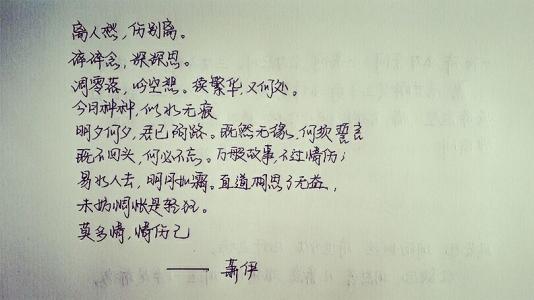 离人愁，伤别离。
碎碎念，深深思。
凋零落，吟空想。獏繁华又何处。
今月种种，似水无痕
明夕何夕，君已陌路。既然无缘，何须誓言
既不回头，何必不忘。万般故事，不过情伤；
易水人去，明月如霜。直道相思了无益，
未妨惆怅是轻狂。
莫多情，情伤己
—— 萧伊